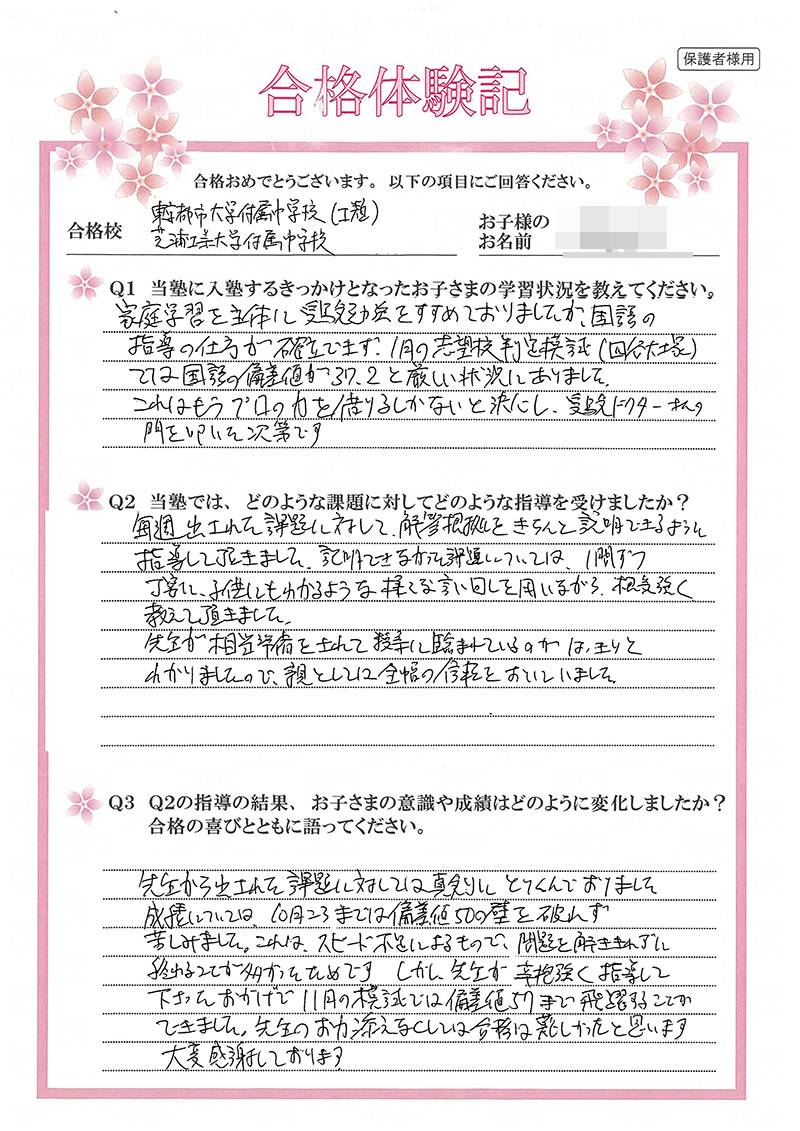 保護者様用
合格体験記
合格おめでとうございます。以下の項目にご回答ください。
合格校
東京都市大学付属中学校(Ⅰ類)
芝浦工業大学付属中学校
お子様の
お名前
Q1 当塾に入塾するきっかけとなったお子さまの学習状況を教えてください。
家庭学習を主体に受験勉強をすすめておりましたが、国語の
指導の仕方が確立できず、1月の志望校判定模試(四谷大塚)
では国語の偏差値が37.2と厳しい状況にありました。
これはもうプロの力を借りるしかないと決心し、受験ドクターさんの
門を叩いた次第です
Q2 当塾では、どのような課題に対してどのような指導を受けましたか?
毎週出された課題に対して、解答根拠をきちんと説明できるように
指導して頂きました。説明できなかった課題については、1問ずつ
丁寧に、子供にもわかるような様々な言い回しを用いながら、根気強く
教えて頂きました。
先生が相当準備をされて授業に臨まれているのがはっきりと
わかりましたので、親としては全幅の信頼をおいていました。
Q3 Q2の指導の結果、お子さまの意識や成績はどのように変化しましたか?
合格の喜びとともに語ってください。
先生から出された課題に対しては真剣にとりくんでおりました
成績については、10月ころまでは偏差値50の壁を破れず
苦しみました。これは、スピード不足によるもので、問題を解ききれずに
終わることが多かったためです しかし先生が辛抱強く指導して
下さったおかげで11月の模試では偏差値57まで飛躍することが
できました。先生のお力添えなくしては合格は難しかったと思います
大変感謝しております